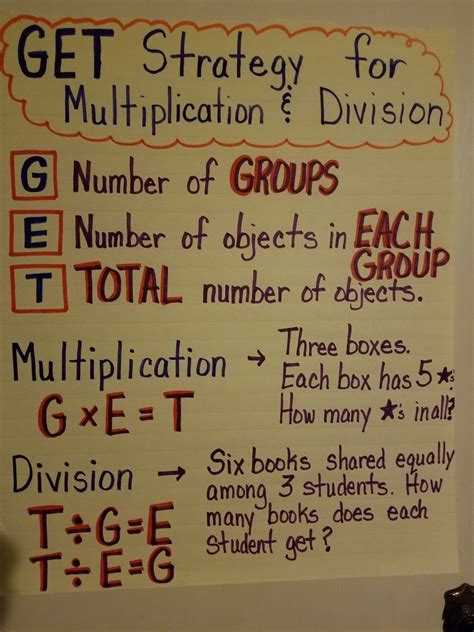 GET Strategy for
Multiplication & Division
G Number of GROUPS
E Number of objects in EACH GROUP
T TOTAL number of objects.
Multiplication → Three boxes.
Each box has 5 ★'s.
How many ★'s in all?
G×E=T
Division → Six books shared equally
among 3 students. How
many books does each
student get?
T÷G=E
T÷E=G